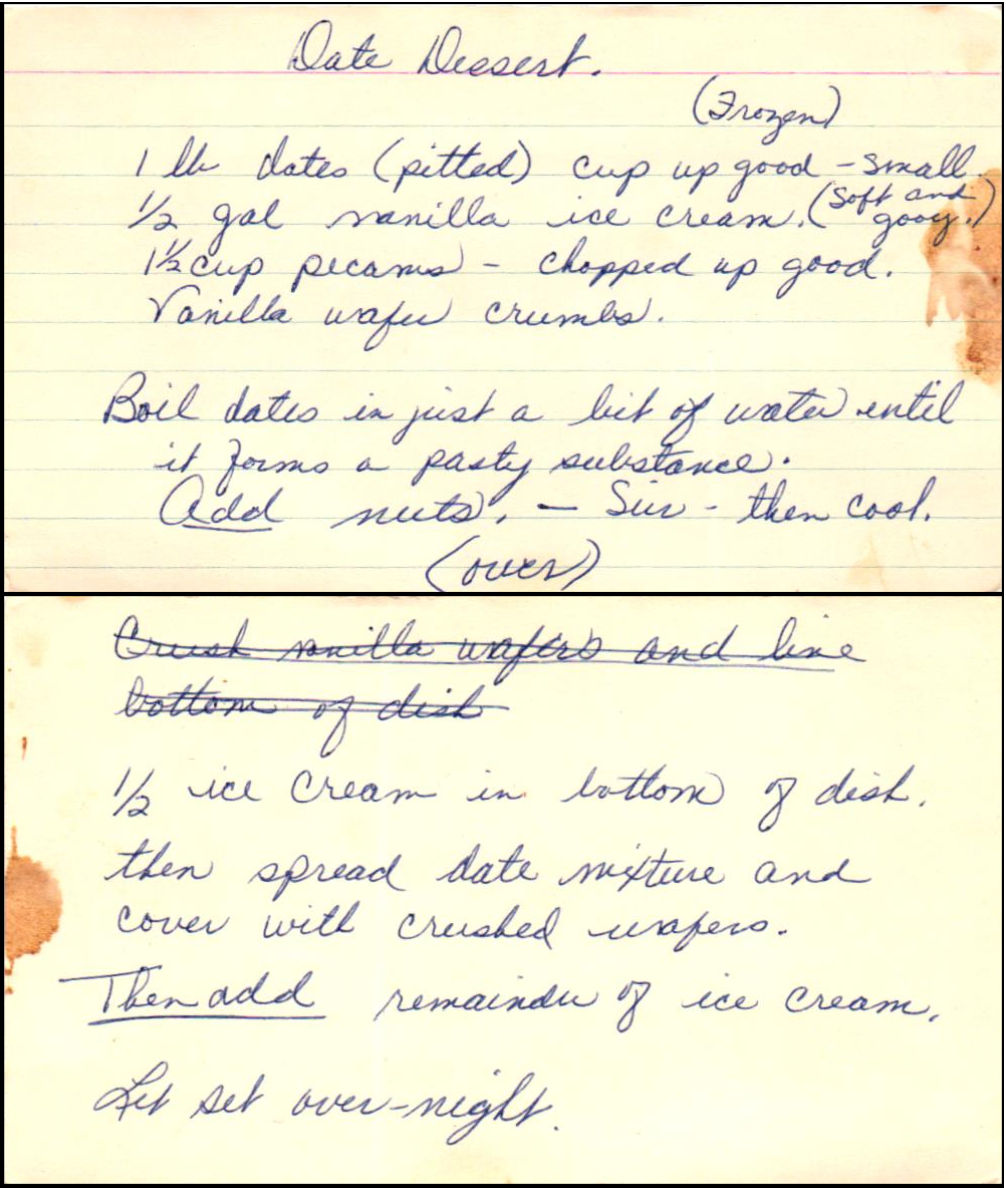 Date Dessert.
(Frozen)
1 lb dates (pitted) cup up good - small.
1/2 gal vanilla ice cream. (Soft and gooy.)
1 1/2 cup pecans - chopped up good.
Vanilla wafer crumbs.
Boil dates in just a bit of water until
it forms a pasty substance.
Add nuts. — Stir - then cool.
(over)
Crush vanilla wafers and line
bottom of dish
1/2 ice cream in bottom of dish.
then spread date mixture and
cover with crushed wafers.
Then add remainder of ice cream.
Let set over-night.